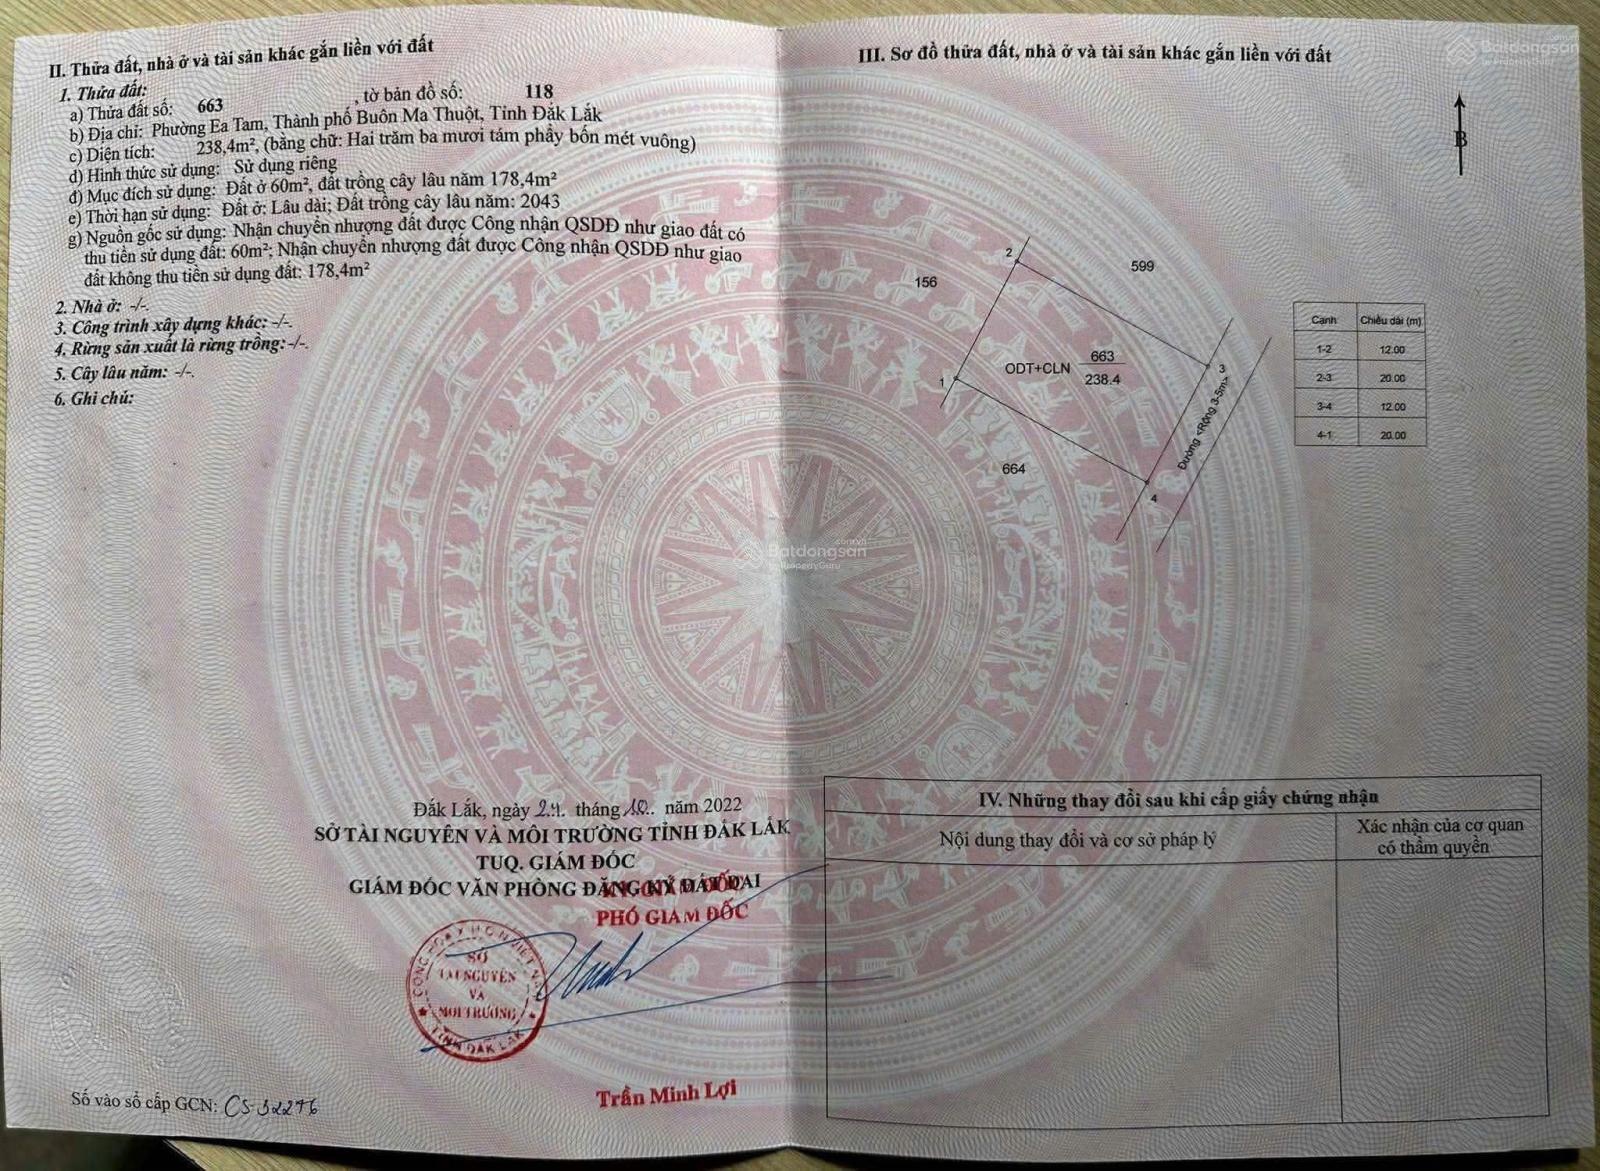 II. Thửa đất, nhà ở và tài sản khác gắn liền với đất
1. Thửa đất:
a) Thửa đất số: 663 , tờ bản đồ số: 118
b) Địa chỉ: Phường Ea Tam, Thành phố Buôn Ma Thuột, Tỉnh Đắk Lắk
c) Diện tích: 238,4m², (bằng chữ: Hai trăm ba mươi tám phẩy bốn mét vuông)
d) Hình thức sử dụng: Sử dụng riêng
đ) Mục đích sử dụng: Đất ở 60m², đất trồng cây lâu năm 178,4m²
e) Thời hạn sử dụng: Đất ở: Lâu dài; Đất trồng cây lâu năm: 2043
g) Nguồn gốc sử dụng: Nhận chuyển nhượng đất được Công nhận QSDĐ như giao đất có
thu tiền sử dụng đất: 60m²; Nhận chuyển nhượng đất được Công nhận QSDĐ như giao
đất không thu tiền sử dụng đất: 178,4m²
2. Nhà ở: -/-.
3. Công trình xây dựng khác: -/-.
4. Rừng sản xuất là rừng trồng: -/-.
5. Cây lâu năm: -/-.
6. Ghi chú:
Đắk Lắk, ngày 24 tháng 10 năm 2022
SỞ TÀI NGUYÊN VÀ MÔI TRƯỜNG TỈNH ĐẮK LẮK
TUQ. GIÁM ĐỐC
GIÁM ĐỐC VĂN PHÒNG ĐĂNG KÝ ĐẤT ĐAI
PHÓ GIÁM ĐỐC
SỞ
TÀI NGUYÊN
VÀ
MÔI TRƯỜNG
TỈNH ĐẮK LẮK
Trần Minh Lợi
Số vào sổ cấp GCN: CS-32276
III. Sơ đồ thửa đất, nhà ở và tài sản khác gắn liền với đất
B
2
599
156
663
ODT+CLN
238.4
3
1
Đường <Rộng 3-5m>
664
4
Cạnh Chiều dài (m)
1-2 12.00
2-3 20.00
3-4 12.00
4-1 20.00
IV. Những thay đổi sau khi cấp giấy chứng nhận
Nội dung thay đổi và cơ sở pháp lý
Xác nhận của cơ quan
có thẩm quyền
Batdongsan.com.vn
by PropertyGuru
Batdongsan.com.vn
by PropertyGuru